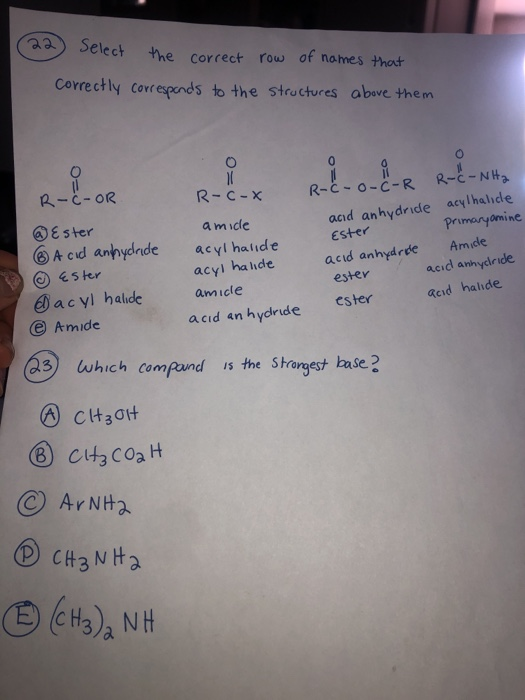 22 Select the correct row of names that
correctly corresponds to the structures above them
O O O O O
|| || || || ||
R-C-OR R-C-X R-C-O-C-R R-C-NH2
a Ester amide acid anhydride acylhalide
B Acid anhydride acyl halide Ester primaryamine
c Ester acyl halide acid anhydride Amide
d acyl halide amide ester acid anhydride
e Amide acid anhydride ester acid halide
23 Which compound is the strongest base?
A CH3OH
B CH3CO2H
C ArNH2
D CH3NH2
E (CH3)2NH